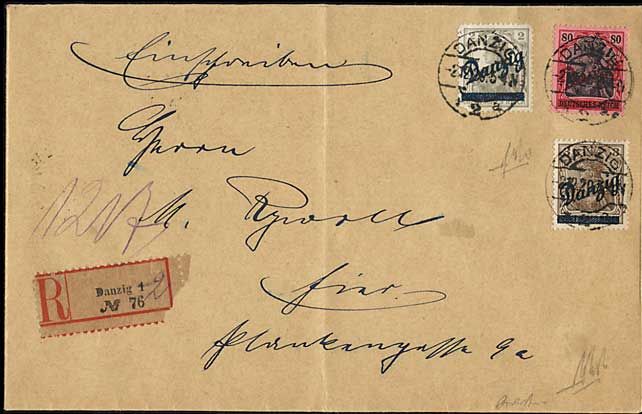 Einschreiben
Herrn
M. Rywoll
hier
Plankengasse 9a
R
Danzig 1
№ 76
2
Danzig
DANZIG
2 a
80 80
DANZIG
DEUTSCHES REICH
DANZIG
Danzig